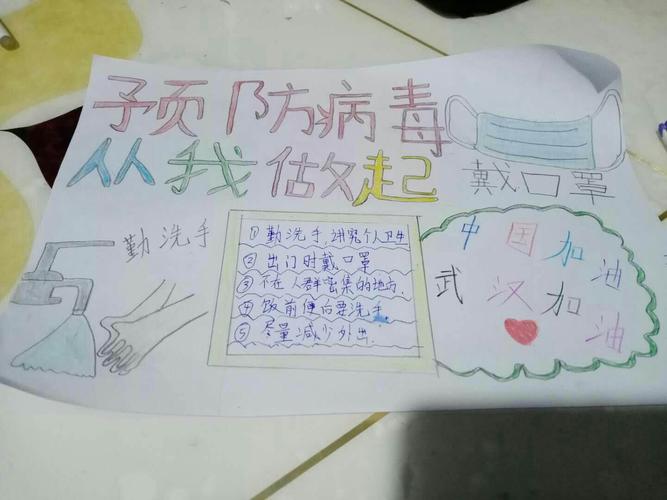 预防病毒
从我做起
戴口罩
勤洗手
①勤洗手,讲究个人卫生
②出门时戴口罩
③不在人群密集的地方.
④饭前便后要洗手.
⑤尽量减少外出.
中国加油
武汉加油